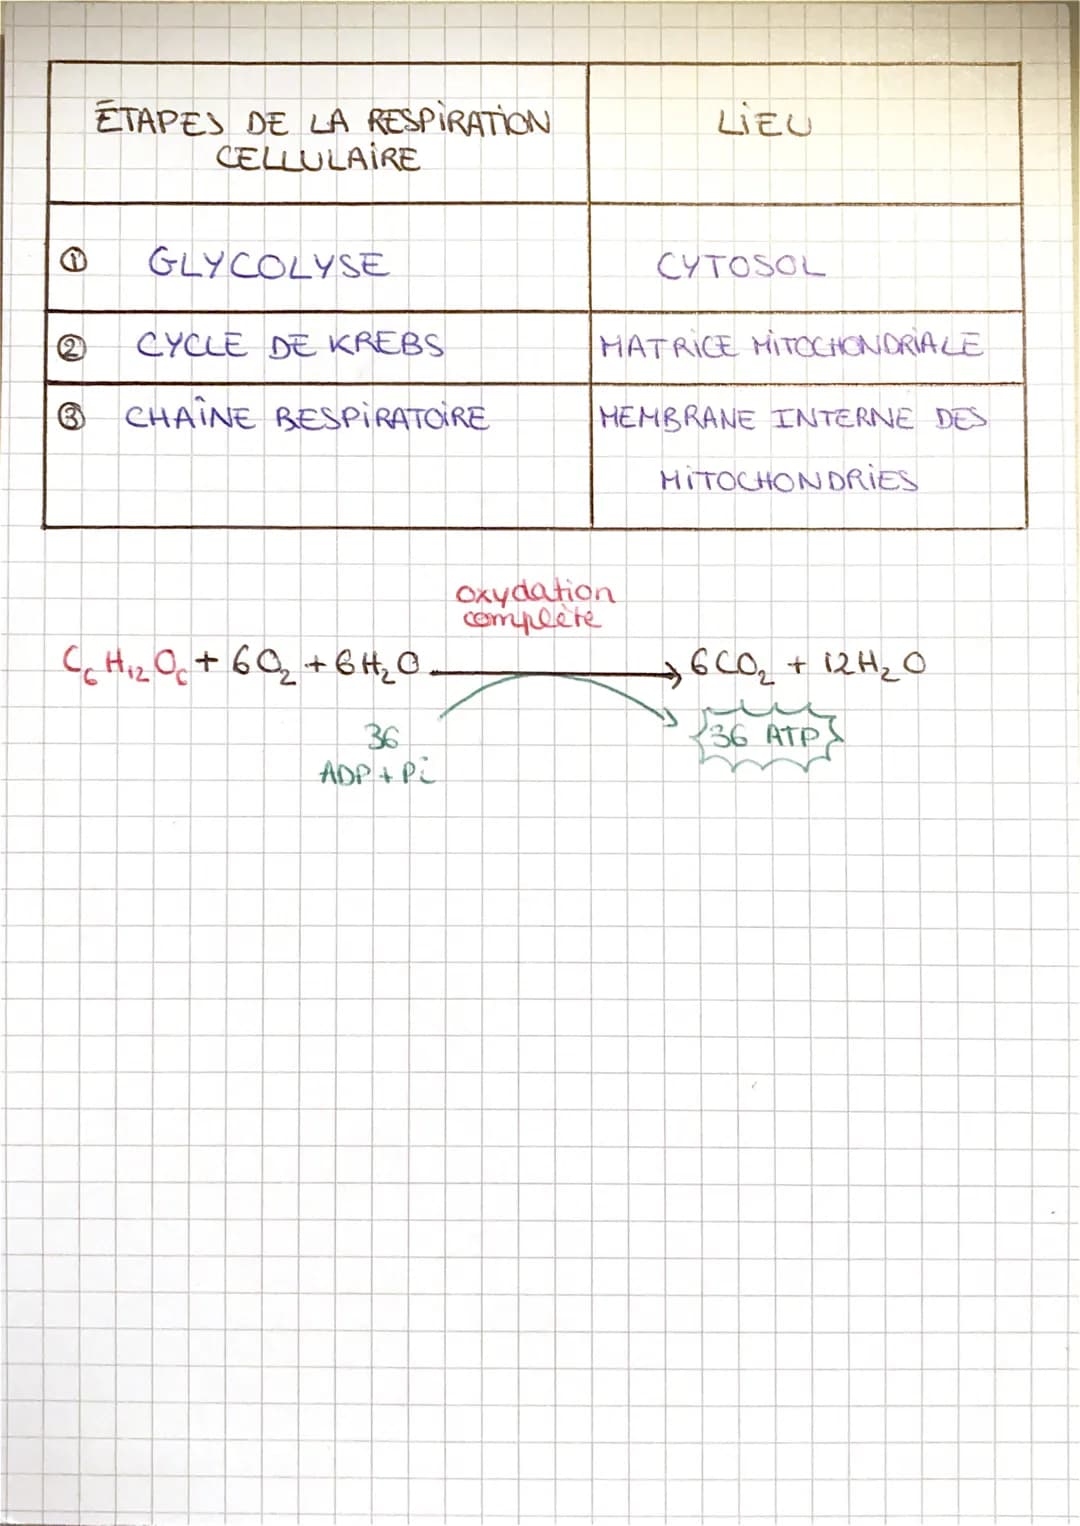 ÉTAPES DE LA RESPIRATION
CELLULAIRE
LIEU
① GLYCOLYSE
CYTOSOL
② CYCLE DE KREBS
MATRICE MITOCHONDRIALE
③ CHAÎNE RESPIRATOIRE
MEMBRANE INTERNE DES
MITOCHONDRIES
oxydation
complète
C₆H₁₂O₆ + 6O₂ + 6H₂O → 6CO₂ + 12H₂O
36
ADP + Pi
36 ATP